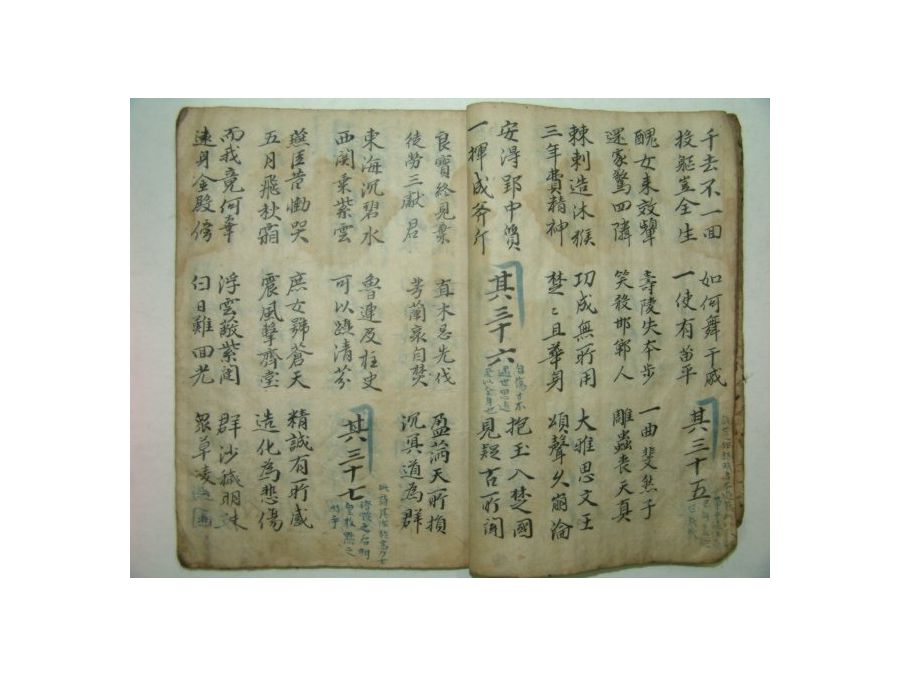 千去不一回
投軀豈全生
如何舞干戚
一使有苗平
其三十五
醜女來效顰
還家驚四隣
壽陵失本步
笑殺邯鄲人
一曲斐然子
雕蟲喪天真
棘刺造沐猴
三年費精神
功成無所用
楚〻且華身
大雅思文王
頌聲久崩淪
安得郢中質
一揮成斧斤
其三十六
抱玉入楚國
見疑古所聞
良寶終見棄
徒勞三獻君
直木忌先伐
芳蘭哀自焚
盈滿天所損
沉冥道為群
東海沉碧水
西関乘紫雲
魯連及柱史
可以躡清芬
其三十七
燕臣昔慟哭
五月飛秋霜
庶女號蒼天
震風擊齊堂
精誠有所感
造化為悲傷
而我竟何辜
遠身金殿傍
浮雲蔽紫闥
白日難回光
群沙穢明珠
眾草凌